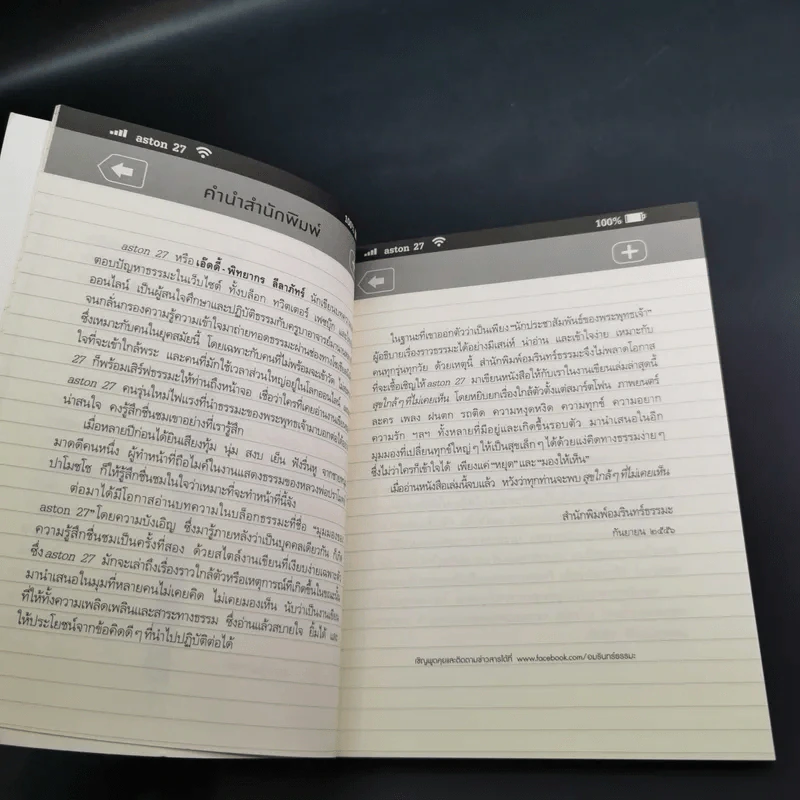 aston 27
คำนำสำนักพิมพ์
aston 27 หรือ เอ๊ดดี้-พิทยากร ลีลาภัทร์ นักเขียน
ตอบปัญหาธรรมะในเว็บไซต์ ทั้งบล็อก ทวิตเตอร์ เฟซบุ๊ก
ออนไลน์ เป็นผู้สนใจศึกษาและปฏิบัติธรรมกับครูบาอาจารย์
จนกลั่นกรองความรู้ความเข้าใจมาถ่ายทอดธรรมะผ่านช่องทาง
ซึ่งเหมาะกับคนในยุคสมัยนี้ โดยเฉพาะกับคนที่ไม่พร้อมจะเข้าวัด
ใจที่จะเข้าใกล้พระ และคนที่มักใช้เวลาส่วนใหญ่อยู่ในโลกออนไลน์
27 ก็พร้อมเสิร์ฟธรรมะให้ท่านถึงหน้าจอ เชื่อว่าใครที่เคยอ่านงานเขียน
aston 27 คนรุ่นใหม่ไฟแรงที่นำธรรมะของพระพุทธเจ้ามาบอกต่อได้
น่าสนใจ คงรู้สึกชื่นชมเขาอย่างที่เรารู้สึก
เมื่อหลายปีก่อนได้ยินเสียงทุ้ม นุ่ม สงบ เย็น ฟังรื่นหู จากชาย
มาดดีคนหนึ่ง ผู้ทำหน้าที่ถือไมค์ในงานแสดงธรรมของหลวงพ่อปราโมทย์
ปาโมชฺโช ก็ให้รู้สึกชื่นชมในใจว่าเหมาะที่จะทำหน้าที่นี้จัง
ต่อมาได้มีโอกาสอ่านบทความในบล็อกธรรมะที่ชื่อ “มุมมองของ
aston 27” โดยความบังเอิญ ซึ่งมารู้ภายหลังว่าเป็นบุคคลเดียวกัน ก็เกิด
ความรู้สึกชื่นชมเป็นครั้งที่สอง ด้วยสไตล์งานเขียนที่เรียบง่ายเฉพาะตัว
ซึ่ง aston 27 มักจะเล่าถึงเรื่องราวใกล้ตัวหรือเหตุการณ์ที่เกิดขึ้นในขณะนั้น
มานำเสนอในมุมที่หลายคนไม่เคยคิด ไม่เคยมองเห็น นับว่าเป็นงานเขียน
ที่ให้ทั้งความเพลิดเพลินและสาระทางธรรม ซึ่งอ่านแล้วสบายใจ ยิ้มได้ และ
ให้ประโยชน์จากข้อคิดดีๆ ที่นำไปปฏิบัติต่อได้
aston 27
100%
ในฐานะที่เขาออกตัวว่าเป็นเพียง “นักประชาสัมพันธ์ของพระพุทธเจ้า”
ผู้อธิบายเรื่องราวธรรมะได้อย่างมีเสน่ห์ น่าอ่าน และเข้าใจง่าย เหมาะกับ
คนทุกรุ่นทุกวัย ด้วยเหตุนี้ สำนักพิมพ์อมรินทร์ธรรมะจึงไม่พลาดโอกาส
ที่จะเชื้อเชิญให้ aston 27 มาเขียนหนังสือให้กับเราในงานเขียนเล่มล่าสุดนี้
สุขใกล้ๆ ที่ไม่เคยเห็น โดยหยิบยกเรื่องใกล้ตัวตั้งแต่สมาร์ตโฟน ภาพยนตร์
ละคร เพลง ฝนตก รถติด ความหงุดหงิด ความทุกข์ ความอยาก
ความรัก ฯลฯ ทั้งหลายที่มีอยู่และเกิดขึ้นรอบตัว มานำเสนอในอีก
มุมมองที่เปลี่ยนทุกข์ใหญ่ๆ ให้เป็นสุขเล็กๆ ได้ด้วยแง่คิดทางธรรมง่ายๆ
ซึ่งไม่ว่าใครก็เข้าใจได้ เพียงแค่ “หยุด” และ “มองให้เห็น”
เมื่ออ่านหนังสือเล่มนี้จบแล้ว หวังว่าทุกท่านจะพบ สุขใกล้ๆ ที่ไม่เคยเห็น
สำนักพิมพ์อมรินทร์ธรรมะ
กันยายน ๒๕๕๖
เชิญพูดคุยและติดตามข่าวสารได้ที่ www.facebook.com/อมรินทร์ธรรมะ